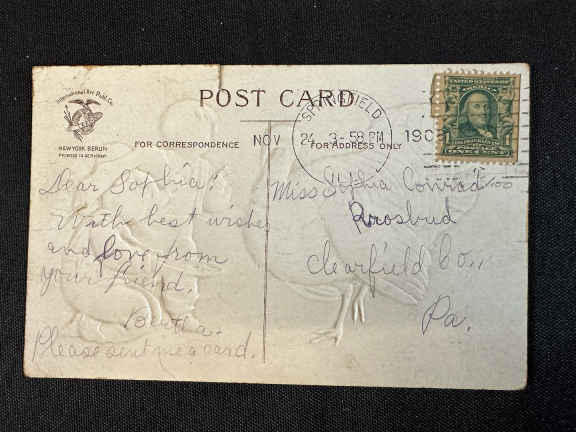 POST CARD
International Art Publ. Co.
NEW YORK BERLIN
PRINTED IN GERMANY
FOR CORRESPONDENCE
FOR ADDRESS ONLY
SPRINGFIELD
NOV 24 3-58 PM 190
ILL.
Dear Sophia!
With best wishes
and love from
your friend,
Bertha.
Please sent me a card.
Miss Sophia Conrad
Roosbud
Clearfield Co.,
Pa.